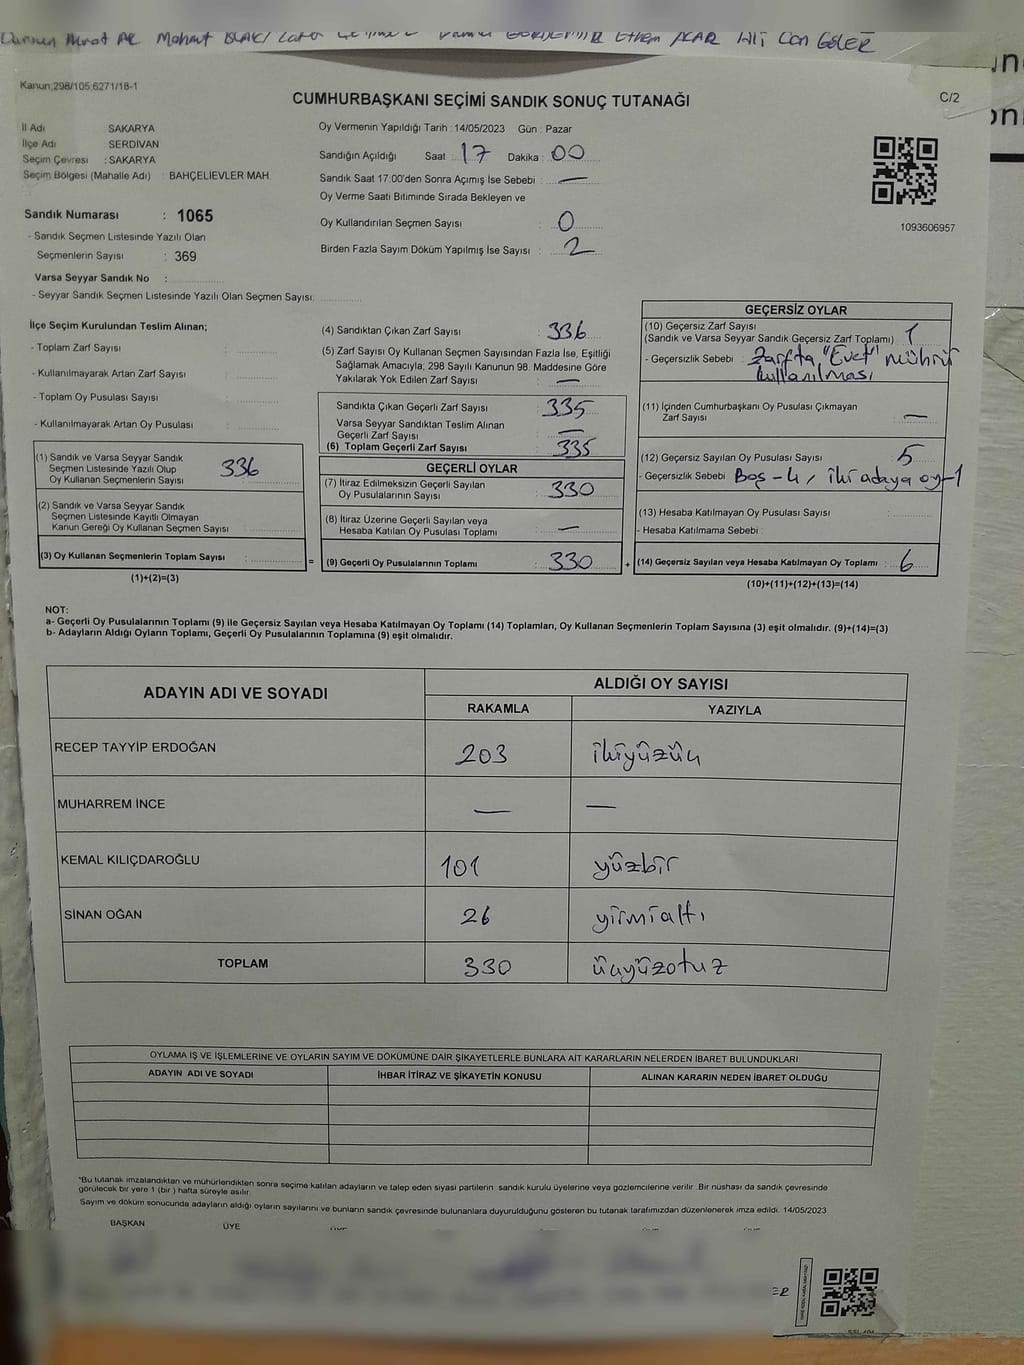 Mahmut
ACAR
Kanun;298/105,6271/18-1
C/2
CUMHURBAŞKANI SEÇİMİ SANDIK SONUÇ TUTANAĞI
İl Adı SAKARYA
İlçe Adı : SERDİVAN
Seçim Çevresi : SAKARYA
Seçim Bölgesi (Mahalle Adı) : BAHÇELİEVLER MAH.
Sandık Numarası : 1065
- Sandık Seçmen Listesinde Yazılı Olan
Seçmenlerin Sayısı : 369
Varsa Seyyar Sandık No :
- Seyyar Sandık Seçmen Listesinde Yazılı Olan Seçmen Sayısı:
Oy Vermenin Yapıldığı Tarih : 14/05/2023 Gün : Pazar
Sandığın Açıldığı Saat : 17 Dakika : 00
Sandık Saat 17:00'den Sonra Açımış İse Sebebi : —
Oy Verme Saati Bitiminde Sırada Bekleyen ve
Oy Kullandırılan Seçmen Sayısı : 0
Birden Fazla Sayım Döküm Yapılmış İse Sayısı : 2
1093606957
İlçe Seçim Kurulundan Teslim Alınan;
- Toplam Zarf Sayısı :
- Kullanılmayarak Artan Zarf Sayısı :
- Toplam Oy Pusulası Sayısı :
- Kullanılmayarak Artan Oy Pusulası :
(1) Sandık ve Varsa Seyyar Sandık
Seçmen Listesinde Yazılı Olup
Oy Kullanan Seçmenlerin Sayısı : 336
(2) Sandık ve Varsa Seyyar Sandık
Seçmen Listesinde Kayıtlı Olmayan
Kanun Gereği Oy Kullanan Seçmen Sayısı :
(3) Oy Kullanan Seçmenlerin Toplam Sayısı :
(1)+(2)=(3)
=
(4) Sandıktan Çıkan Zarf Sayısı : 336
(5) Zarf Sayısı Oy Kullanan Seçmen Sayısından Fazla İse, Eşitliği
Sağlamak Amacıyla; 298 Sayılı Kanunun 98. Maddesine Göre
Yakılarak Yok Edilen Zarf Sayısı : —
Sandıkta Çıkan Geçerli Zarf Sayısı : 335
Varsa Seyyar Sandıktan Teslim Alınan
Geçerli Zarf Sayısı : —
(6) Toplam Geçerli Zarf Sayısı : 335
GEÇERLİ OYLAR
(7) İtiraz Edilmeksizin Geçerli Sayılan
Oy Pusulalarının Sayısı : 330
(8) İtiraz Üzerine Geçerli Sayılan veya
Hesaba Katılan Oy Pusulası Toplamı : —
(9) Geçerli Oy Pusulalarının Toplamı : 330
+
GEÇERSİZ OYLAR
(10) Geçersiz Zarf Sayısı
(Sandık ve Varsa Seyyar Sandık Geçersiz Zarf Toplamı) : 1
- Geçersizlik Sebebi : Zarfta "Evet" mührü
kullanılması
(11) İçinden Cumhurbaşkanı Oy Pusulası Çıkmayan
Zarf Sayısı : —
(12) Geçersiz Sayılan Oy Pusulası Sayısı : 5
- Geçersizlik Sebebi : Boş-4, iki adaya oy-1
(13) Hesaba Katılmayan Oy Pusulası Sayısı :
- Hesaba Katılmama Sebebi :
(14) Geçersiz Sayılan veya Hesaba Katılmayan Oy Toplamı : 6
(10)+(11)+(12)+(13)=(14)
NOT:
a- Geçerli Oy Pusulalarının Toplamı (9) ile Geçersiz Sayılan veya Hesaba Katılmayan Oy Toplamı (14) Toplamları, Oy Kullanan Seçmenlerin Toplam Sayısına (3) eşit olmalıdır. (9)+(14)=(3)
b- Adayların Aldığı Oyların Toplamı, Geçerli Oy Pusulalarının Toplamına (9) eşit olmalıdır.
ADAYIN ADI VE SOYADI ALDIĞI OY SAYISI
RAKAMLA YAZIYLA
RECEP TAYYİP ERDOĞAN 203 ikiyüzüç
MUHARREM İNCE — —
KEMAL KILIÇDAROĞLU 101 yüzbir
SİNAN OĞAN 26 yirmialtı
TOPLAM 330 üçyüzotuz
OYLAMA İŞ VE İŞLEMLERİNE VE OYLARIN SAYIM VE DÖKÜMÜNE DAİR ŞİKAYETLERLE BUNLARA AİT KARARLARIN NELERDEN İBARET BULUNDUKLARI
ADAYIN ADI VE SOYADI İHBAR İTİRAZ VE ŞİKAYETİN KONUSU ALINAN KARARIN NEDEN İBARET OLDUĞU
*Bu tutanak imzalandıktan ve mühürlendikten sonra seçime katılan adayların ve talep eden siyasi partilerin sandık kurulu üyelerine veya gözlemcilerine verilir. Bir nüshası da sandık çevresinde
görülecek bir yere 1 (bir) hafta süreyle asılır.
Sayım ve döküm sonucunda adayların aldığı oyların sayılarını ve bunların sandık çevresinde bulunanlara duyurulduğunu gösteren bu tutanak tarafımızdan düzenlenerek imza edildi. 14/05/2023
BAŞKAN ÜYE